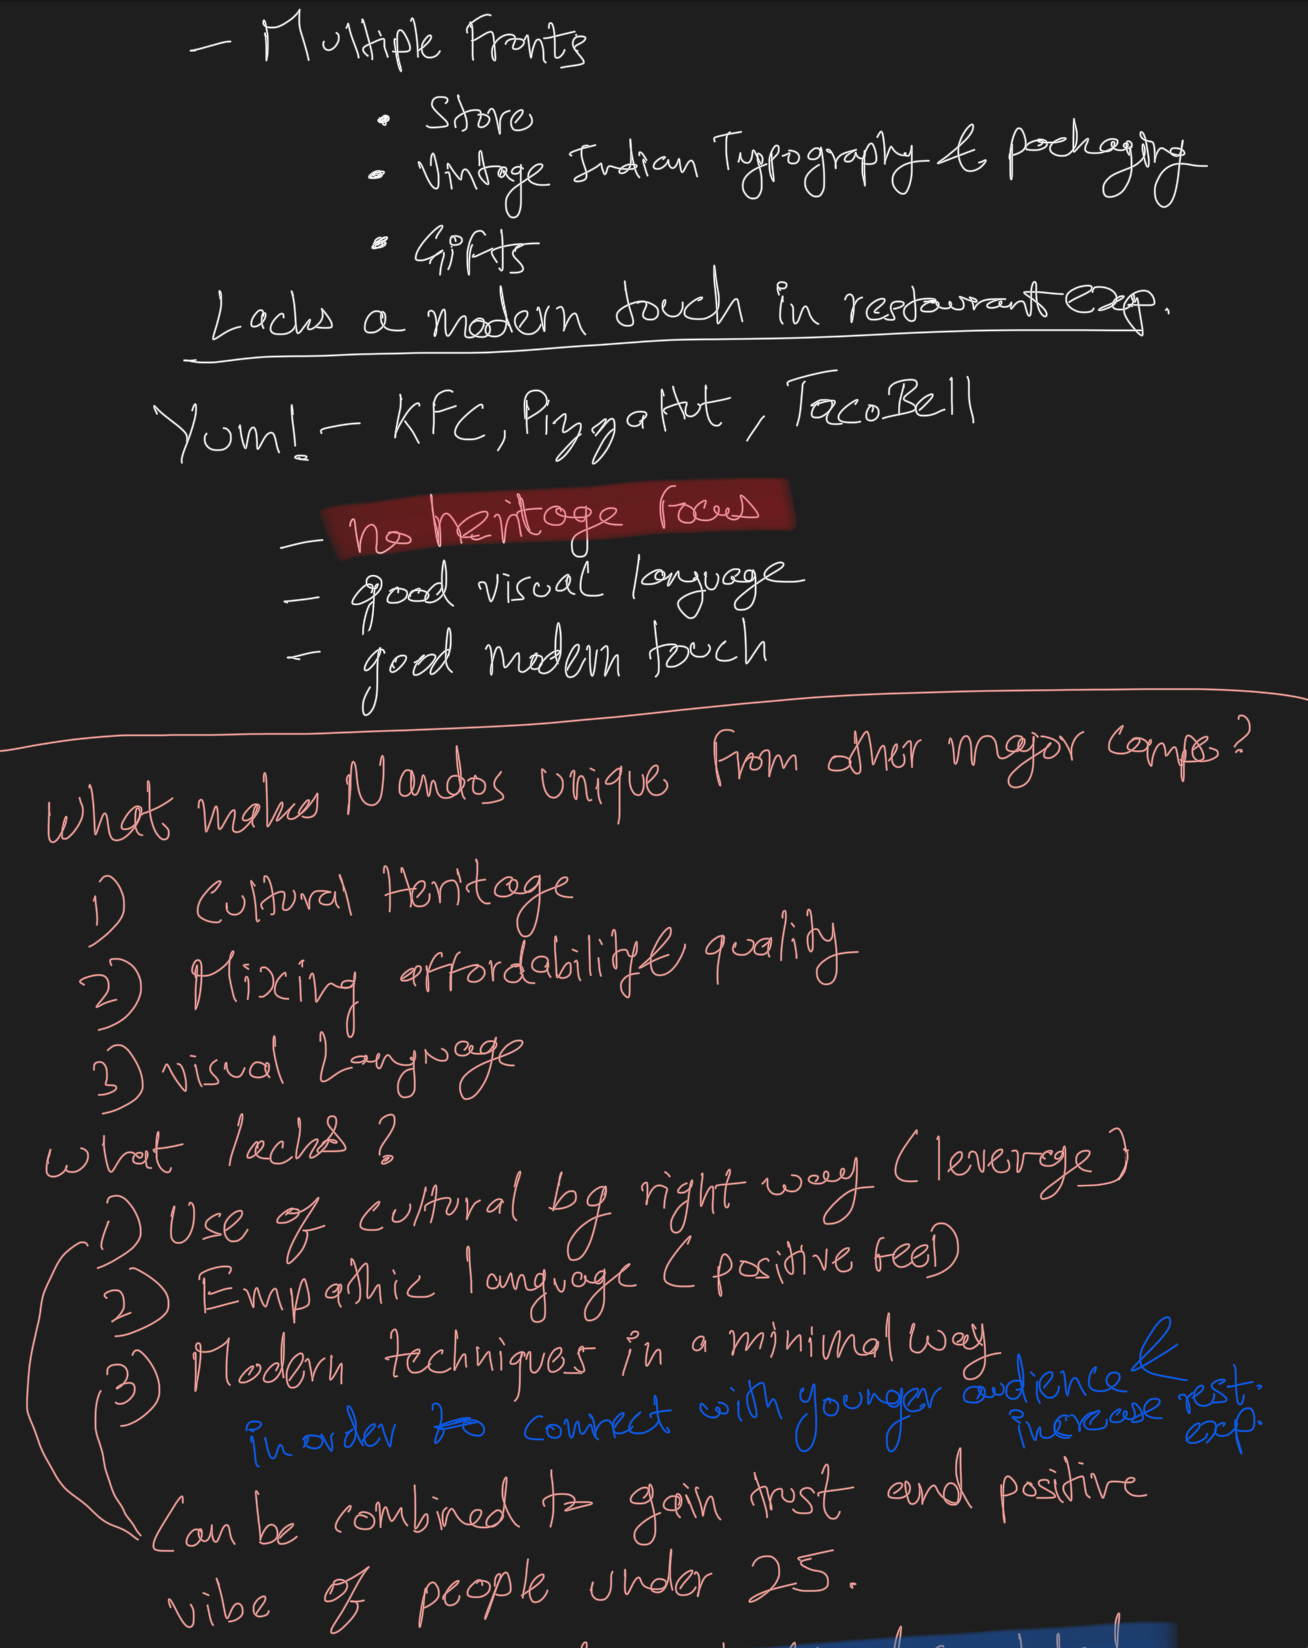 – Multiple Fronts
• Store
• Vintage Indian Typography & packaging
• Gifts
Lacks a modern touch in restaurant exp.
Yum! – KFC, Pizza Hut, TacoBell
– no heritage focus
– good visual language
– good modern touch
What makes Nandos unique from other major comps?
1) Cultural Heritage
2) Mixing affordability & quality
3) Visual Language
What lacks?
1) Use of cultural bg right way (leverage)
2) Empathic language (positive feel)
3) Modern techniques in a minimal way
in order to connect with younger audience &
increase rest. exp.
Can be combined to gain trust and positive
vibe of people under 25.